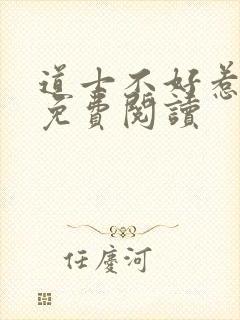 道士不好惹
免費閱讀
任慶河